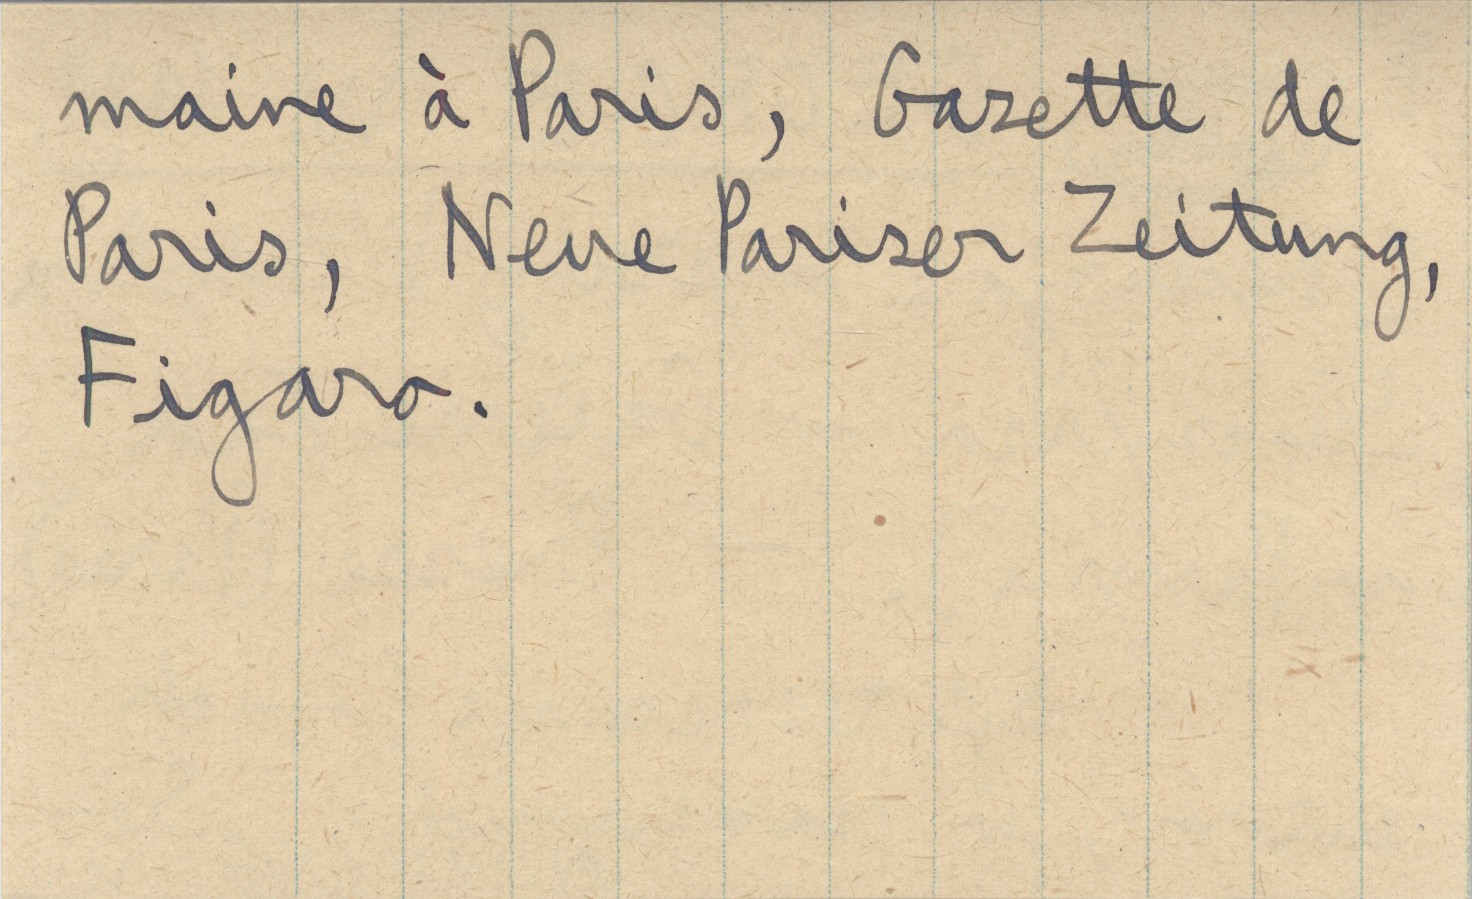 maine à Paris, Gazette de
Paris, Neue Pariser Zeitung,
Figaro.